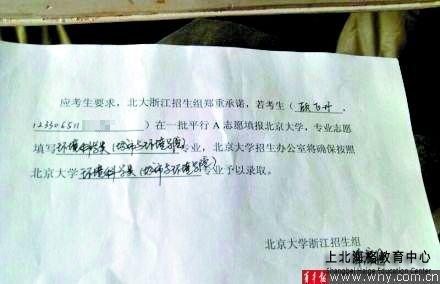 应考生要求，北大浙江招生组郑重承诺，若考生（
）在一批平行A志愿填报北京大学，专业志愿
填写环境科学类（城市与环境学院）专业，北京大学招生办公室将确保按照
北京大学环境科学类（城市与环境学院）专业予以录取。
北京大学浙江招生组
上北海名教育中心
Shanghai Qizine Education Center
青年报 www.wny.com.cn